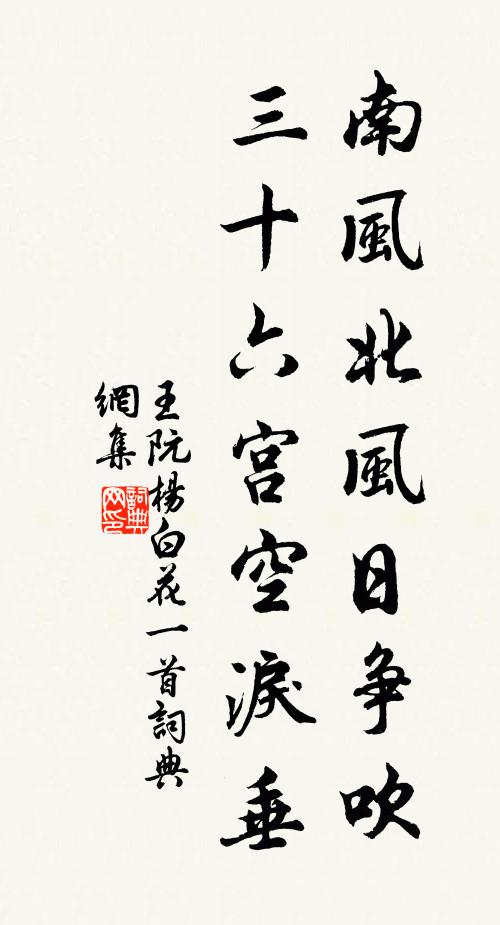 南風北風日争吹
三十六宮空淚垂
王阮楊白花一首詞典
網集
詞典
网印